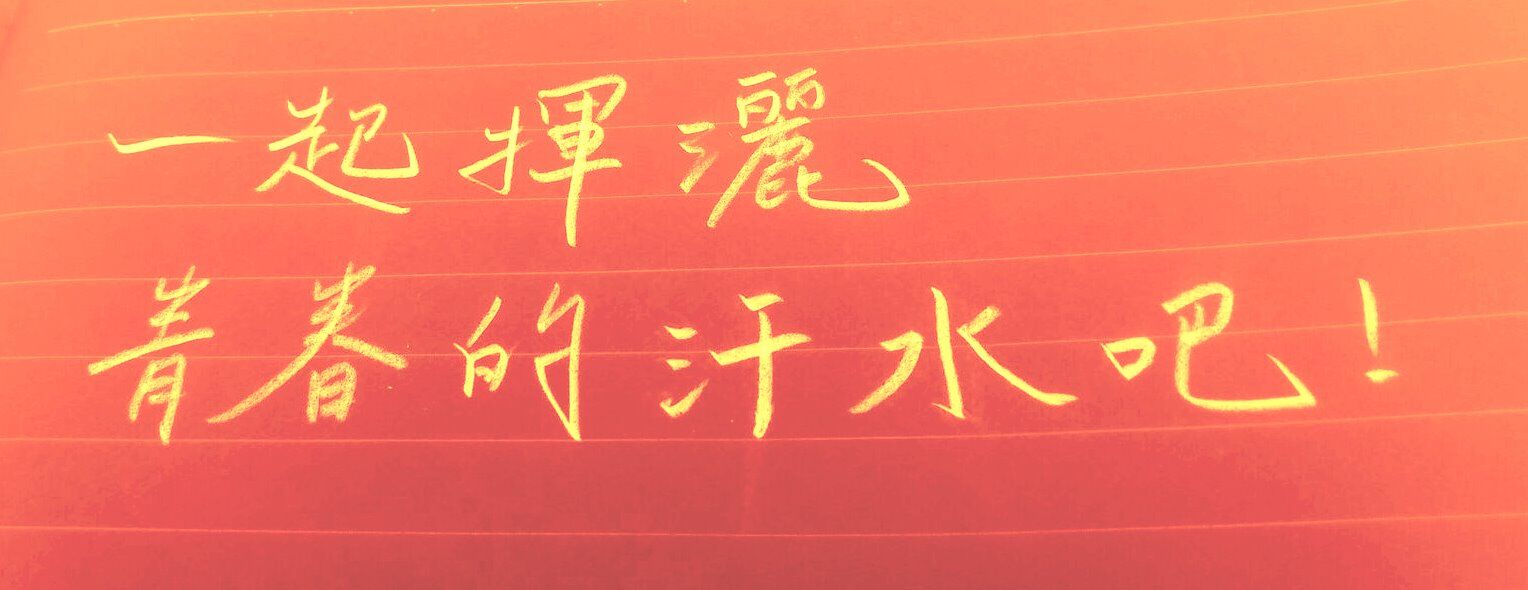 一起揮灑
青春的汗水吧！